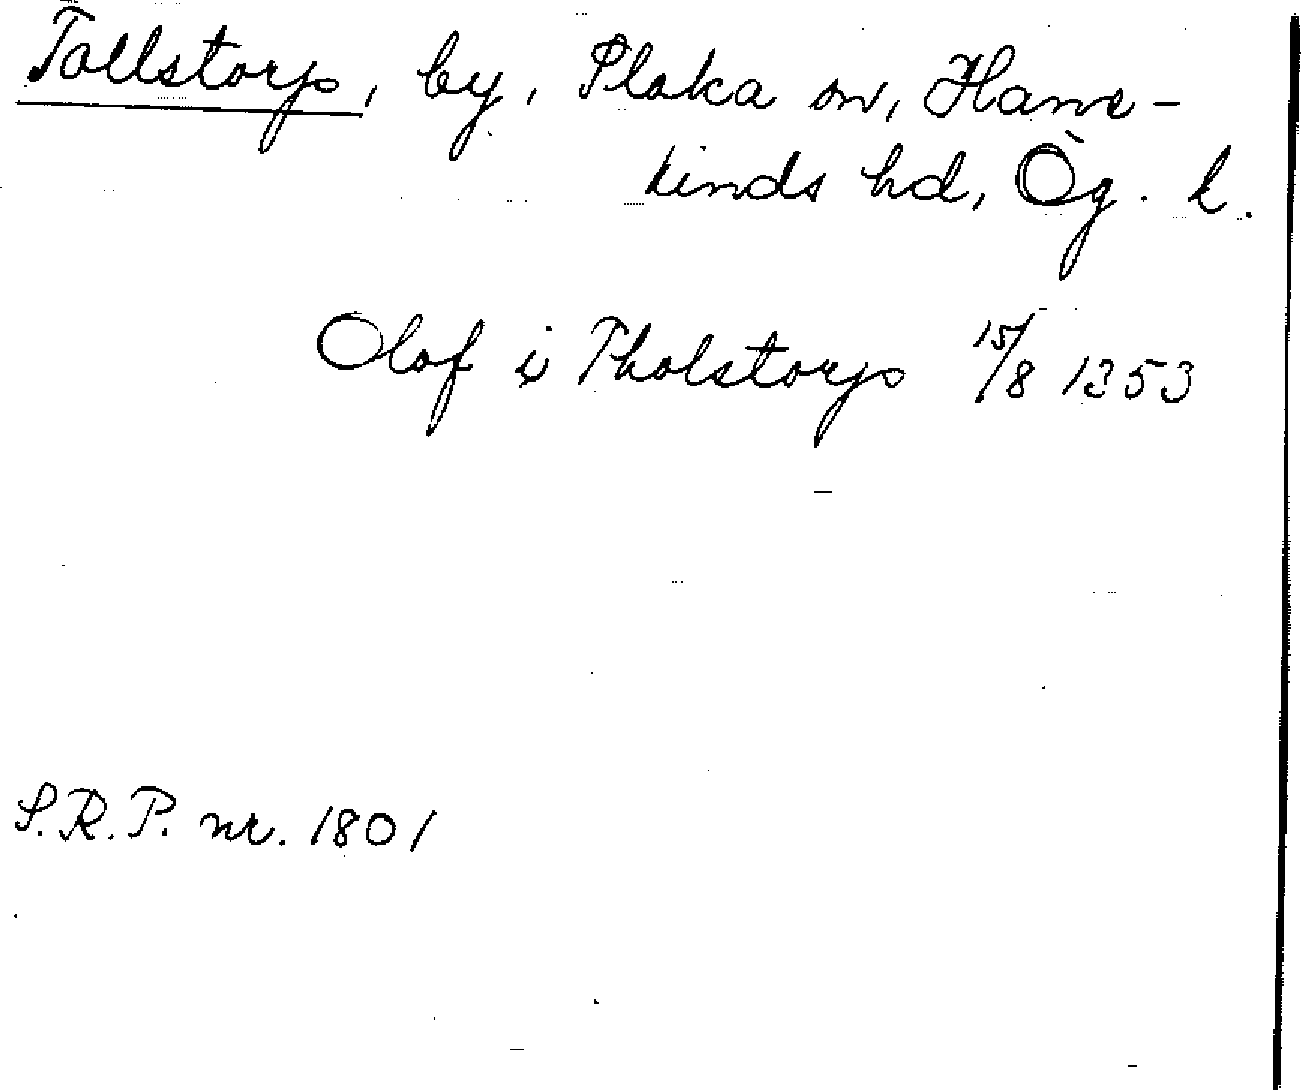 Tollstorp, by, Slaka sn, Hane-
kinds hd, Ög. l.
Olof i Tholstorp 15/8 1353
S.R.P. nr. 1801